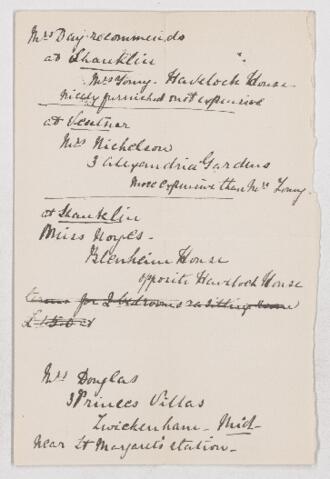 Mrs Day recommends
at Shanklin
Mrs Young - Havelock House -
nicely furnished & not expensive
at Ventnor
Mrs Nicholson
3 Alexandria Gardens
More expensive than Mrs Young -
at Shanklin
Miss Noyes -
Blenheim House
opposite Havelock House
terms for 2 bedrooms & a sitting room
Mrs Douglas
3 Princes Villas
Twickenham - Mid -
Near St Margarets station -